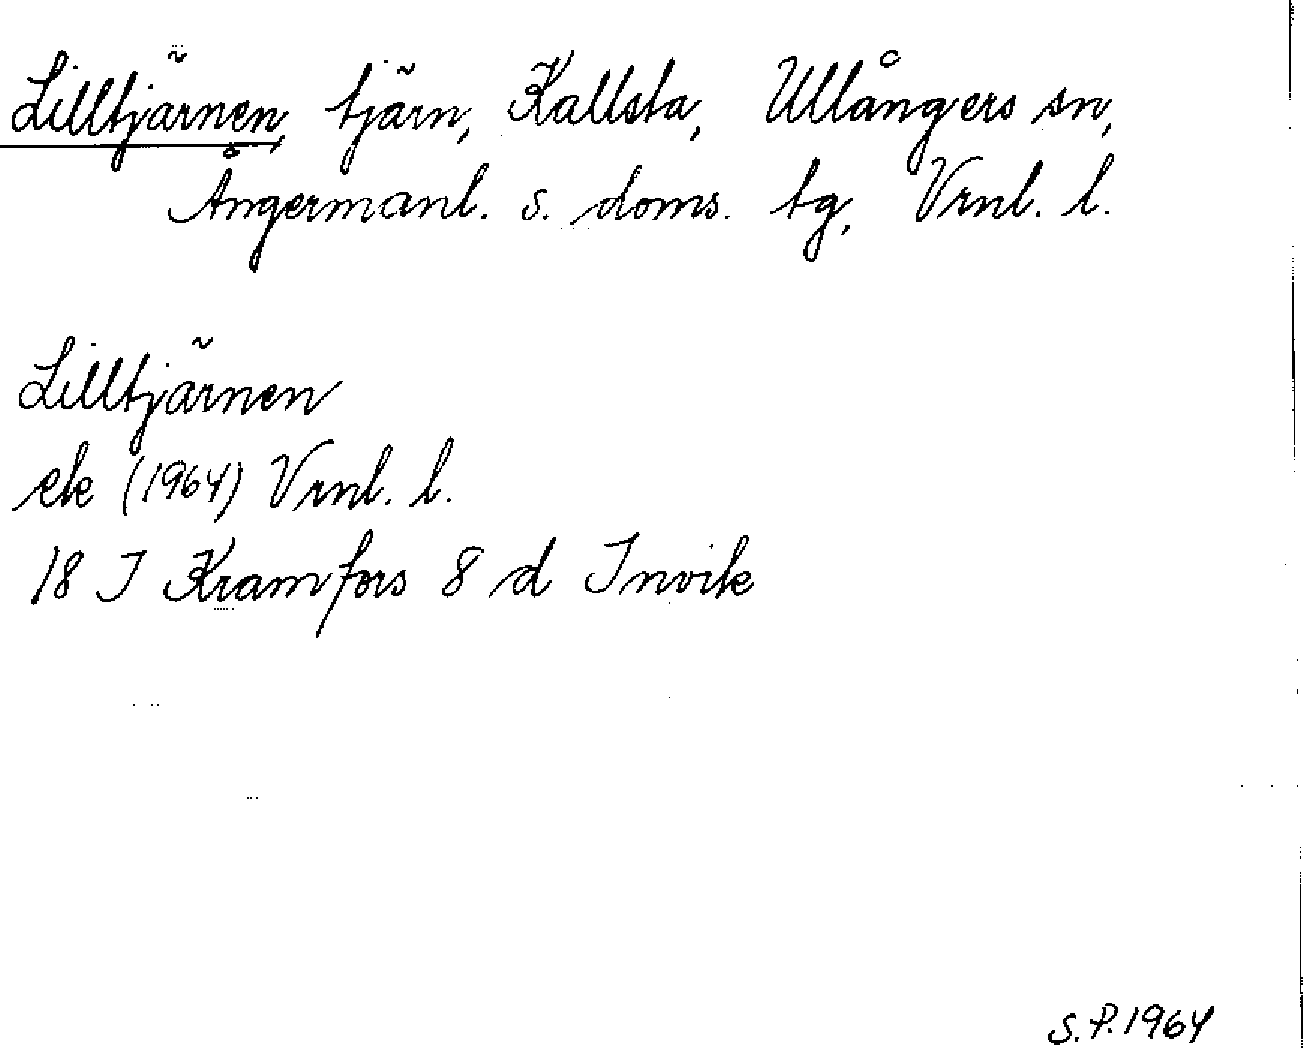 Lilltjärnen, tjärn, Kallsta, Ullångers sn,
Ångermanl. s. doms. tg, Vrnl. l.
Lilltjärnen
ek (1964) Vrnl. l.
18 I Kramfors 8 d Invik
S.P. 1964